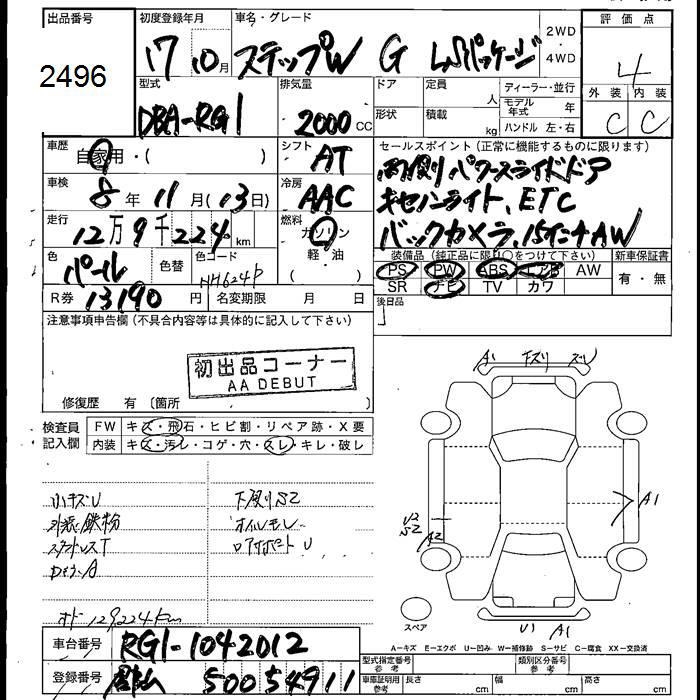 出品番号
2496
初度登録年月
17 10月
車名・グレード
ステップW G LSパッケージ
2WD
・
4WD
評価点
4
外装 内装
C C
型式
DBA-RG1
排気量
2000 CC
ドア
形状
定員 人
積載 kg
ディーラー・並行
モデル年式 年
ハンドル 左・右
車歴
自家用・( )
シフト
AT
セールスポイント(正常に機能するものに限ります)
両側パワースライドドア
キセノンライト、ETC
バックカメラ、15インチAW
車検
8年11月(13日)
冷房
AAC
走行
12万9千224km
燃料
ガソリン
軽・油
( )
色
パール
色替
色コード
NH624P
装備品(純正品に限り○をつけて下さい)
PS PW ABS エアB AW
SR ナビ TV カワ
新車保証書
有・無
R券 13190円
名変期限 月 日
後日品
注意事項申告欄(不具合内容等は具体的に記入して下さい)
初出品コーナー
AA DEBUT
修復歴 有 〔箇所
検査員記入欄
FW キズ・飛石・ヒビ割・リペア跡・X要
内装 キズ・汚レ・コゲ・穴・スレ・キレ・破レ
小キズU
外装鉄粉
スタッドレスT
下廻りS2
オイルモレ
ロアサポートU
オドー129224km
A1 下スリ ズレ
A1
U2
S2
A2
U1 A1
スペア
A=キズ E=エクボ U=凹み W=補修跡 S=サビ C=腐食 XX=交換済
車台番号 RG1-1042012
登録番号 50054911
型式指定番号
参考
類別区分番号
参考
車庫証明用
参考
長さ cm 幅 cm 高さ cm